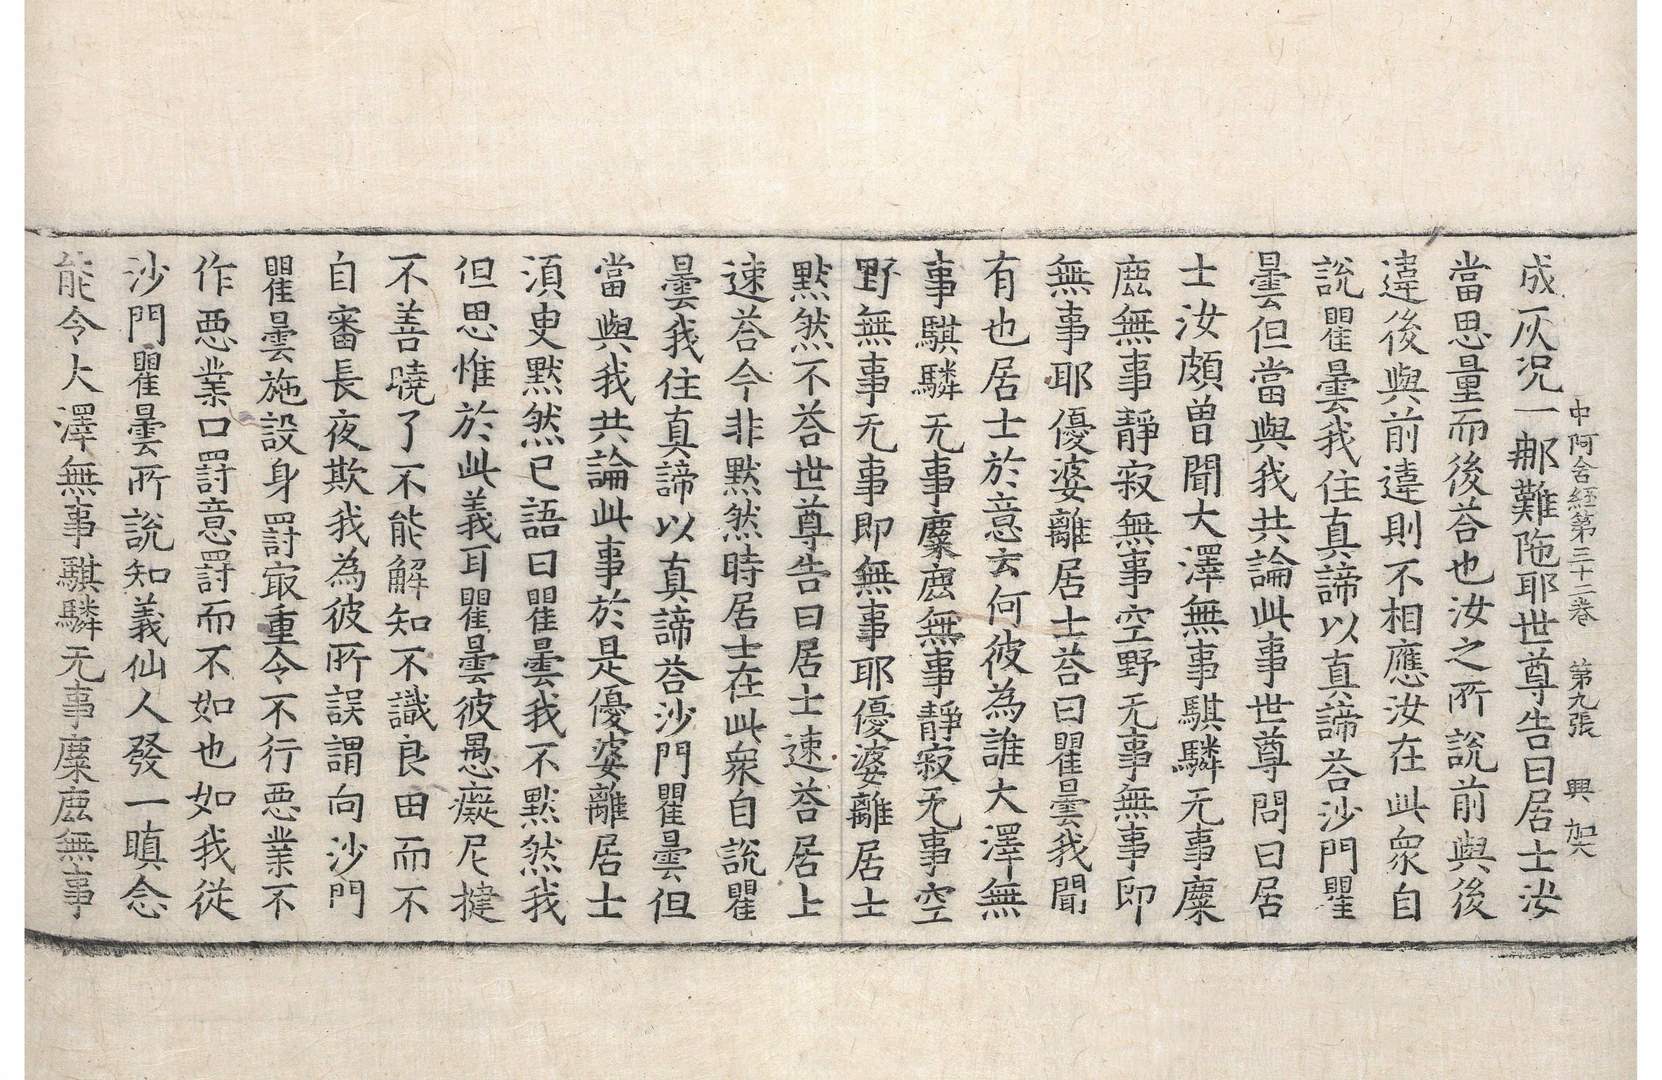 中阿含經第三十二卷　第九張　興
成灰况一那難陁耶世尊告曰居士汝
當思量而後荅也汝之所說前與後
違後與前違則不相應汝在此衆自
說瞿曇我住真諦以真諦荅沙門瞿
曇但當與我共論此事世尊問曰居
士汝頗曾聞大澤無事騏驎无事麋
鹿無事靜寂無事空野无事無事即
無事耶優婆離居士荅曰瞿曇我聞
有也居士於意云何彼為誰大澤無
事騏驎无事麋鹿無事靜寂无事空
野無事无事即無事耶優婆離居士
默然不荅世尊告曰居士速荅居士
速荅今非默然時居士在此衆自說瞿
曇我住真諦以真諦荅沙門瞿曇但
當與我共論此事於是優婆離居士
湏臾默然已語曰瞿曇我不默然我
但思惟於此義耳瞿曇彼愚癡尼揵
不善曉了不能解知不識良田而不
自審長夜欺我為彼所誤謂向沙門
瞿曇施設身罸㝡重令不行惡業不
作惡業口罸意罸而不如也如我從
沙門瞿曇所說知義仙人發一瞋念
能令大澤無事騏驎无事麋鹿無事